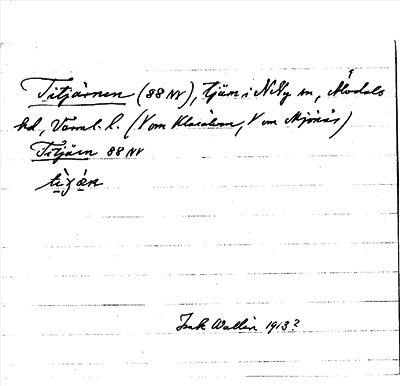 Titjärnen (88 NV), tjärn i N Ny sn, Älvdals
hd, Värml. l. (V om Klarälven, V om Mjönäs)
Titjärn 88 NV
Insk Wallin 1913?